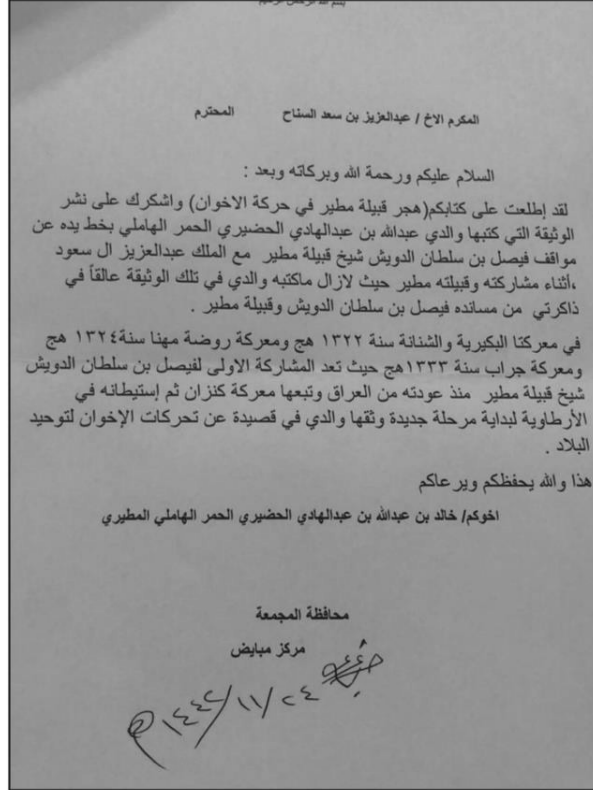 بسم الله الرحمن الرحيم
المكرم الاخ / عبدالعزيز بن سعد السناح المحترم
السلام عليكم ورحمة الله وبركاته وبعد :
لقد إطلعت على كتابكم(هجر قبيلة مطير في حركة الاخوان) واشكرك على نشر
الوثيقة التي كتبها والدي عبدالله بن عبدالهادي الحضيري الحمر الهاملي بخط يده عن
مواقف فيصل بن سلطان الدويش شيخ قبيلة مطير مع الملك عبدالعزيز ال سعود
،أثناء مشاركته وقبيلته مطير حيث لازال ماكتبه والدي في تلك الوثيقة عالقاً في
ذاكرتي من مسانده فيصل بن سلطان الدويش وقبيلة مطير .
في معركتا البكيرية والشنانة سنة ١٣٢٢ هج ومعركة روضة مهنا سنة١٣٢٤ هج
ومعركة جراب سنة ١٣٣٣هج حيث تعد المشاركة الاولى لفيصل بن سلطان الدويش
شيخ قبيلة مطير منذ عودته من العراق وتبعها معركة كنزان ثم إستيطانه في
الأرطاوية لبداية مرحلة جديدة وثقها والدي في قصيدة عن تحركات الإخوان لتوحيد
البلاد .
هذا والله يحفظكم ويرعاكم
اخوكم/ خالد بن عبدالله بن عبدالهادي الحضيري الحمر الهاملي المطيري
محافظة المجمعة
مركز مبايض
١٤٤٢/١١/٢٤